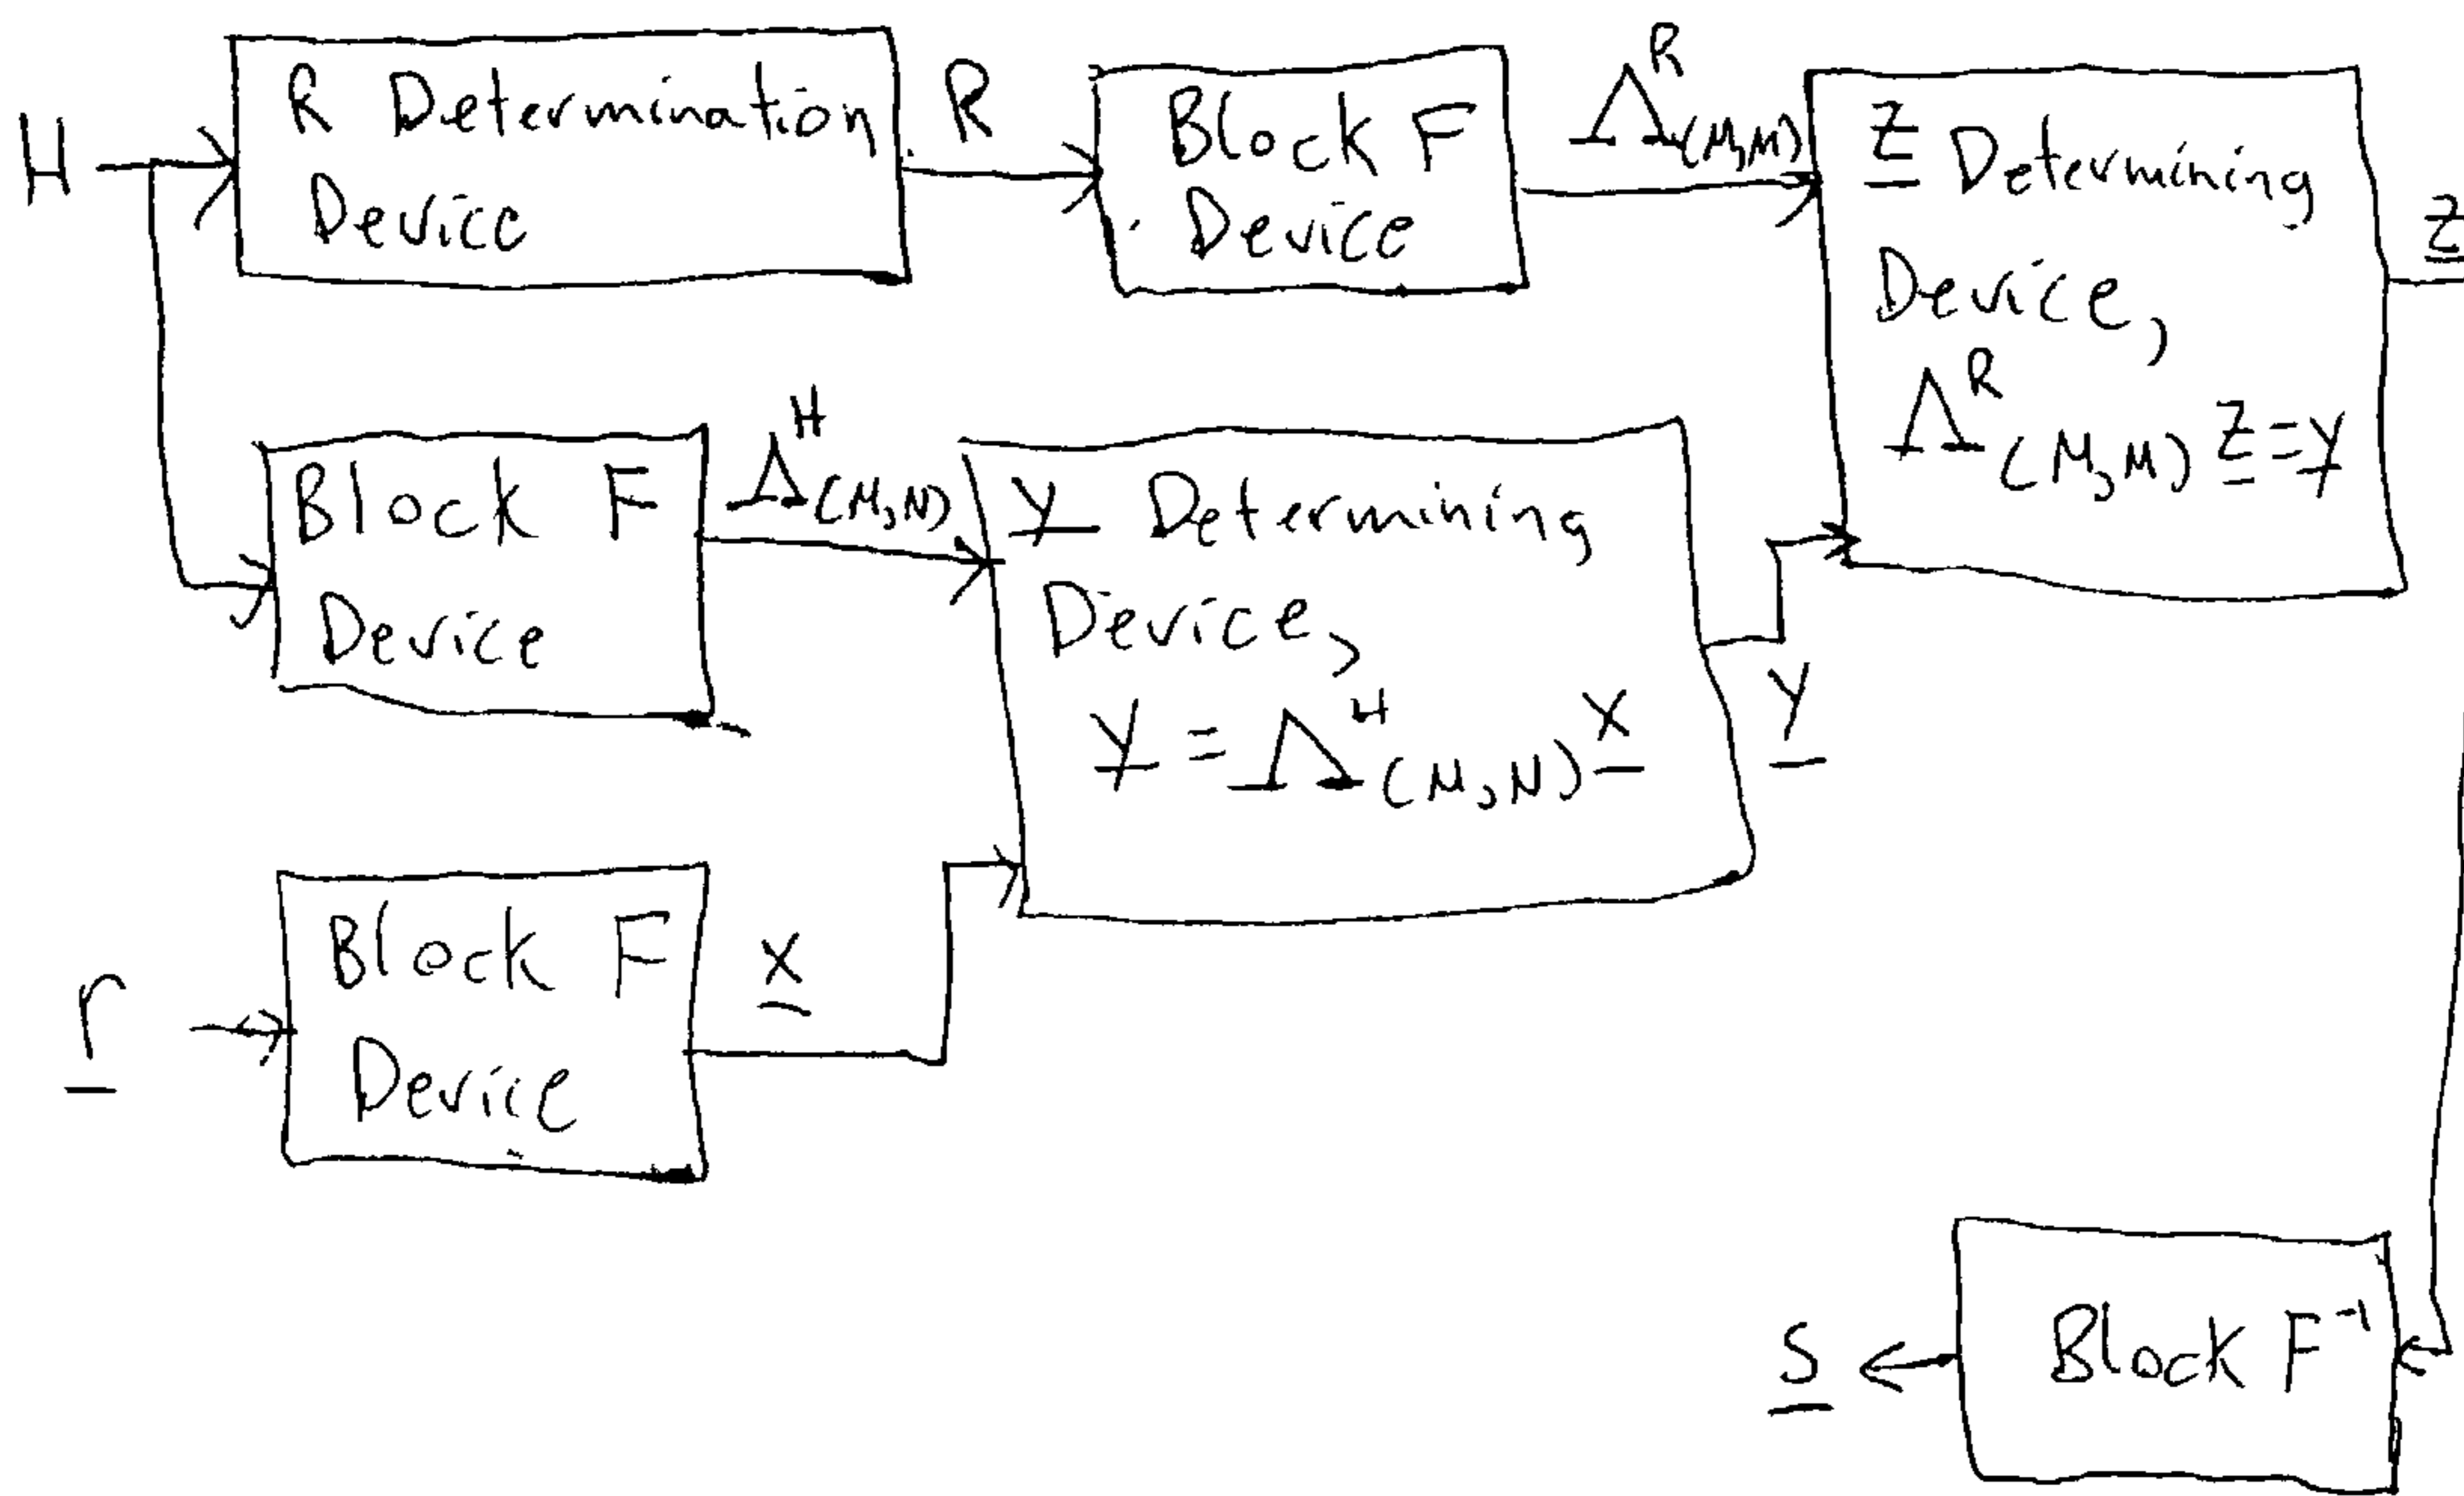 H
R Determination
Device
R
Block F
Device
Λ^R_(M,M)
z Determining
Device,
Λ^R_(M,M) z = y
z
Block F
Device
Λ^H_(M,N)
y Determining
Device,
y = Λ^H_(M,N) x
y
r
Block F
Device
x
s
Block F^-1